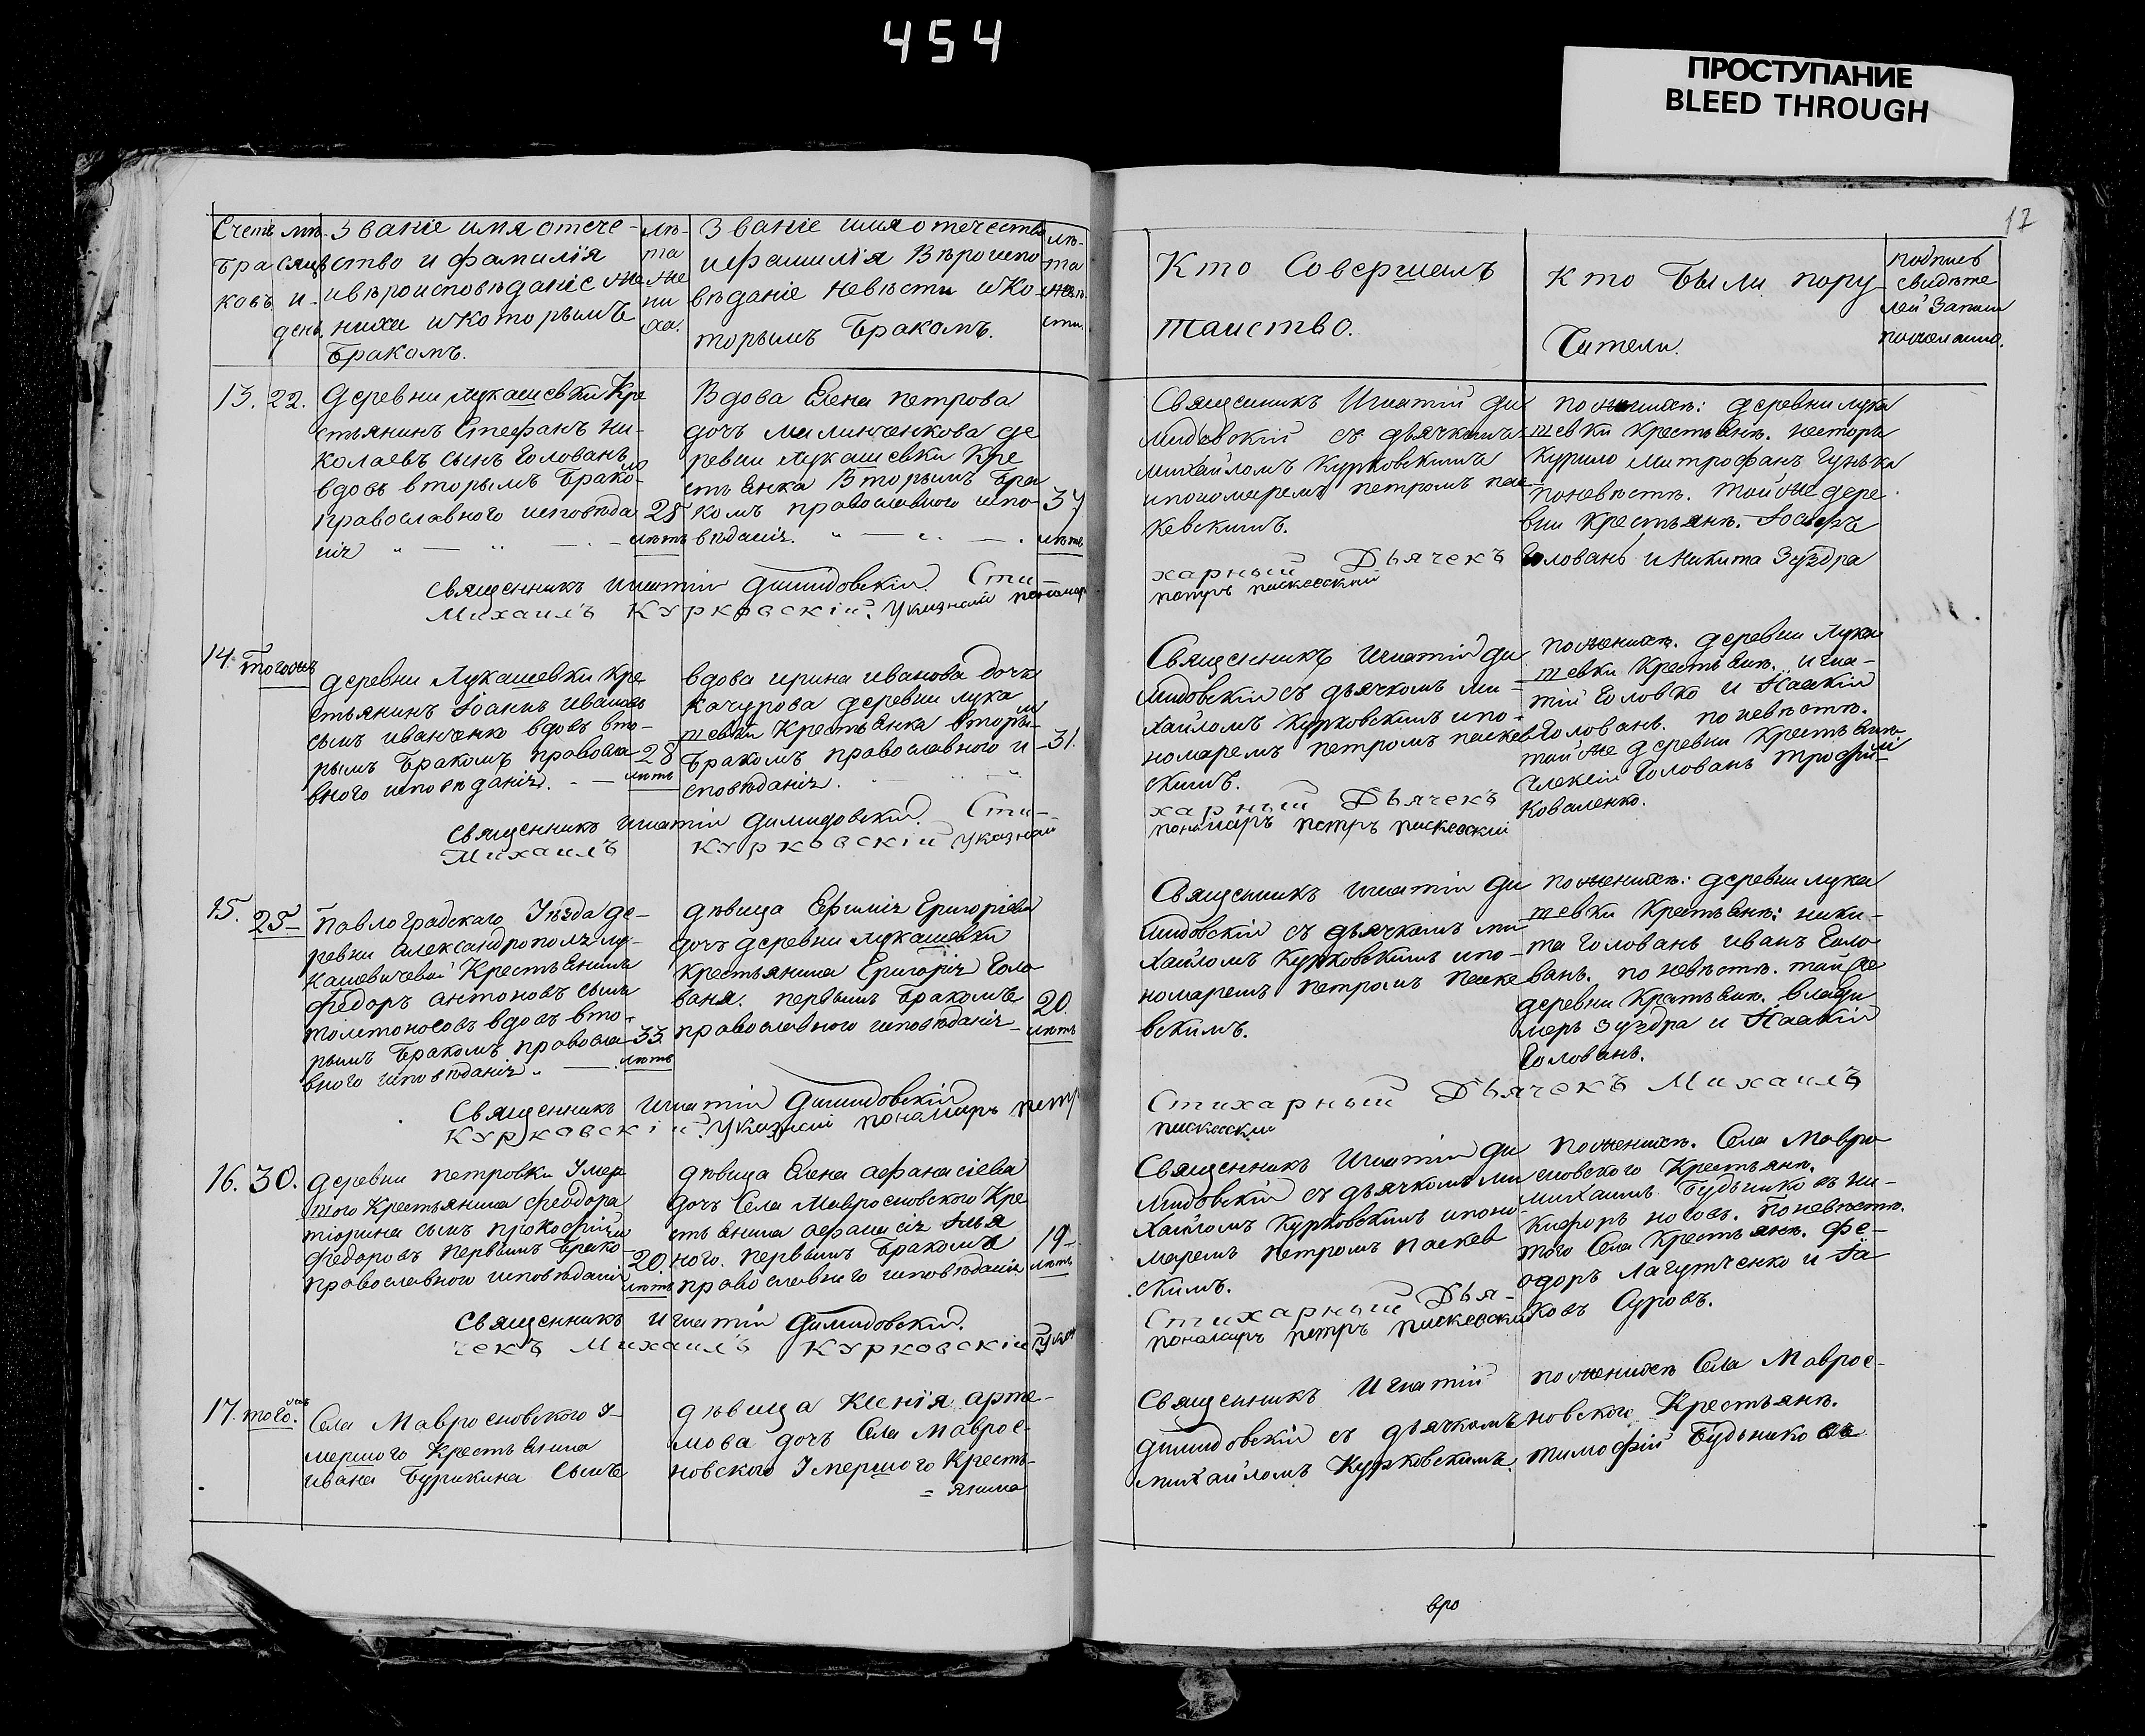 454
ПРОСТУПАНИЕ
BLEED THROUGH
17
Счетъ
бра
ковъ
мѣ-
сяцъ
и
день
Званіе имя отече-
ство и фамилія
и вѣроисповѣданіе же
ниха и которымъ
бракомъ.
лѣ-
та
же
ни
ха.
Званіе имя отечество
и фамилія вѣроиспо
вѣданіе невѣсты и ко
торымъ бракомъ.
лѣ-
та
невѣ
сты.
Кто Совершалъ
таинство.
Кто были пору
чители.
подпись
свидѣте
лей записи
по желанію.
13. 22.
деревни Лукашевки Кре
стьянинъ Стефанъ Ни-
колаевъ сынъ Голованъ
вдовъ вторымъ брако-мъ
православного исповѣда
нія
28
лѣтъ
Вдова Елена петрова
дочь малинченкова де
ревни Лукашевки Кре
стьянка Вторымъ бра
комъ православного испо
вѣданія.
37
лѣтъ
Священникъ Игнатій Ди
мидовскій съ дьячкомъ
михайломъ Курковскимъ
и пономаремъ петромъ пас-
кевскимъ.
по женихѣ: деревни лука
шевки крестьяне. несторъ
Курило митрофанъ Гунька
по невѣстѣ. той же дере
вни крестьяне. Іосифъ
Голованъ и Никита Зуздра
священникъ игнатій Димидовскій. Сти-
харный Дьячекъ
Михаилъ Курковскій. Указный пономар
петръ паскевскій
14. тогожъ
деревни Лукашевки кре
стьянинъ Іоаннъ ивановъ
сынъ иванченко вдовъ вто-
рымъ бракомъ правосла
вного исповѣданія.
28
лѣтъ
вдова ирина иванова дочь
качурова деревни лука
шевки Крестьянка вторы-мъ
бракомъ православного и
сповѣданія.
31.
Священникъ Игнатій ди
мидовскій съ дьячкомъ ми-
хайломъ Курковскимъ и по-
номаремъ петромъ паскев
скимъ.
по женихѣ. деревни Лука
шевки крестьяне. игна-
тій Головко и Іоакій
Голованъ. по невѣстѣ.
той же деревни крестьяне
Алексій Голованъ Трофим
Коваленко.
священникъ игнатій димидовскій. Сти-
харный Дьячекъ
Михаилъ Курковскій Указной
пономаръ петръ паскевскій
15. 25
Павлоградскаго Уѣзда де-
ревни Александрополя лу-
кашевичевой Крестьянинъ
Федоръ антоновъ сынъ
толстоносовъ вдовъ вто-
рымъ бракомъ правосла
вного исповѣданія.
33.
лѣтъ
дѣвица Ефимія Григоріева
дочь деревни лукашевки
крестьянина Григорія Голо
ваня. первымъ бракомъ
православного исповѣданія
20.
лѣтъ
Священникъ игнатій Ди
мидовскій съ дьячкомъ ми
хайломъ Курковскимъ и по-
номаремъ петромъ Паске
вскимъ.
по женихѣ: деревни лука
шевки крестьяне: ники-
та Голованъ иванъ Голо
ванъ. по невѣстѣ. той же
деревни Крестьяне. влади
меръ Зуздра и Іоакій
Голованъ.
Священникъ игнатій Димидовскій
Стихарный Дьячекъ Михаилъ
Курковскій. Указный пономаръ петръ
паскевскій
16. 30.
деревни петровки Умер
шого Крестьянина Феодора
тюрина сынъ прокофій
Федоровъ первымъ брако
православного исповѣданія
20.
лѣтъ
дѣвица Елена афанасіева
дочь Села Мавросновского Кре
стьянина афанасія
ного. первымъ бракомъ
православного исповѣданія.
19
лѣтъ
Священникъ Игнатій ди
мидовскій съ дьячкомъ ми
хайломъ Курковскимъ и поно-
маремъ петромъ паскев
скимъ.
по женихѣ. Села Мавро
сновского Крестьяне.
михаилъ Будьниковъ ни-
кифоръ носовъ. по невѣстѣ.
того Села Крестьяне. Фе-
одоръ Лагутченко и Іа
ковъ Суровъ.
Священникъ игнатій димидовскій.
Стихарный Дья-
чекъ Михаилъ Курковскій Указ
пономаръ петръ паскевскій
17. тогожъ.
Села Мавросновского У-
мершого Крестьянина
ивана Бурикина сынъ
дѣвица Ксенія арте-
мова дочь Села Маврос-
новского Умершого Кресть-
= янина
Священникъ Игнатій
димидовскій съ дьячкомъ
михайломъ Курковскимъ
по женихѣ Села Маврос-
новского Крестьяне.
тимофій Будьниковъ